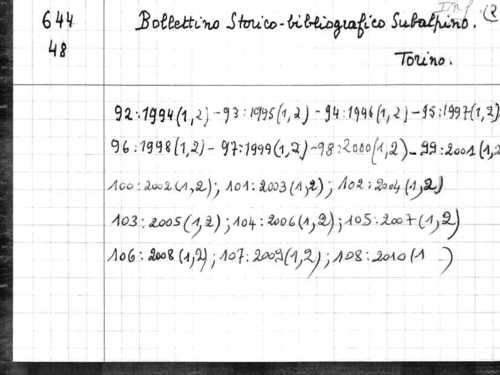 644 Bollettino Storico-bibliografico Subalpino. (2
48 Torino.
92:1994(1,2) - 93:1995(1,2) - 94:1996(1,2) - 95:1997(1,2)
96:1998(1,2) - 97:1999(1,2) - 98:2000(1,2) - 99:2001(1,2
100:2002(1,2); 101:2003(1,2); 102:2004(1,2)
103:2005(1,2); 104:2006(1,2); 105:2007(1,2)
106:2008(1,2); 107:2009(1,2); 108:2010(1 )